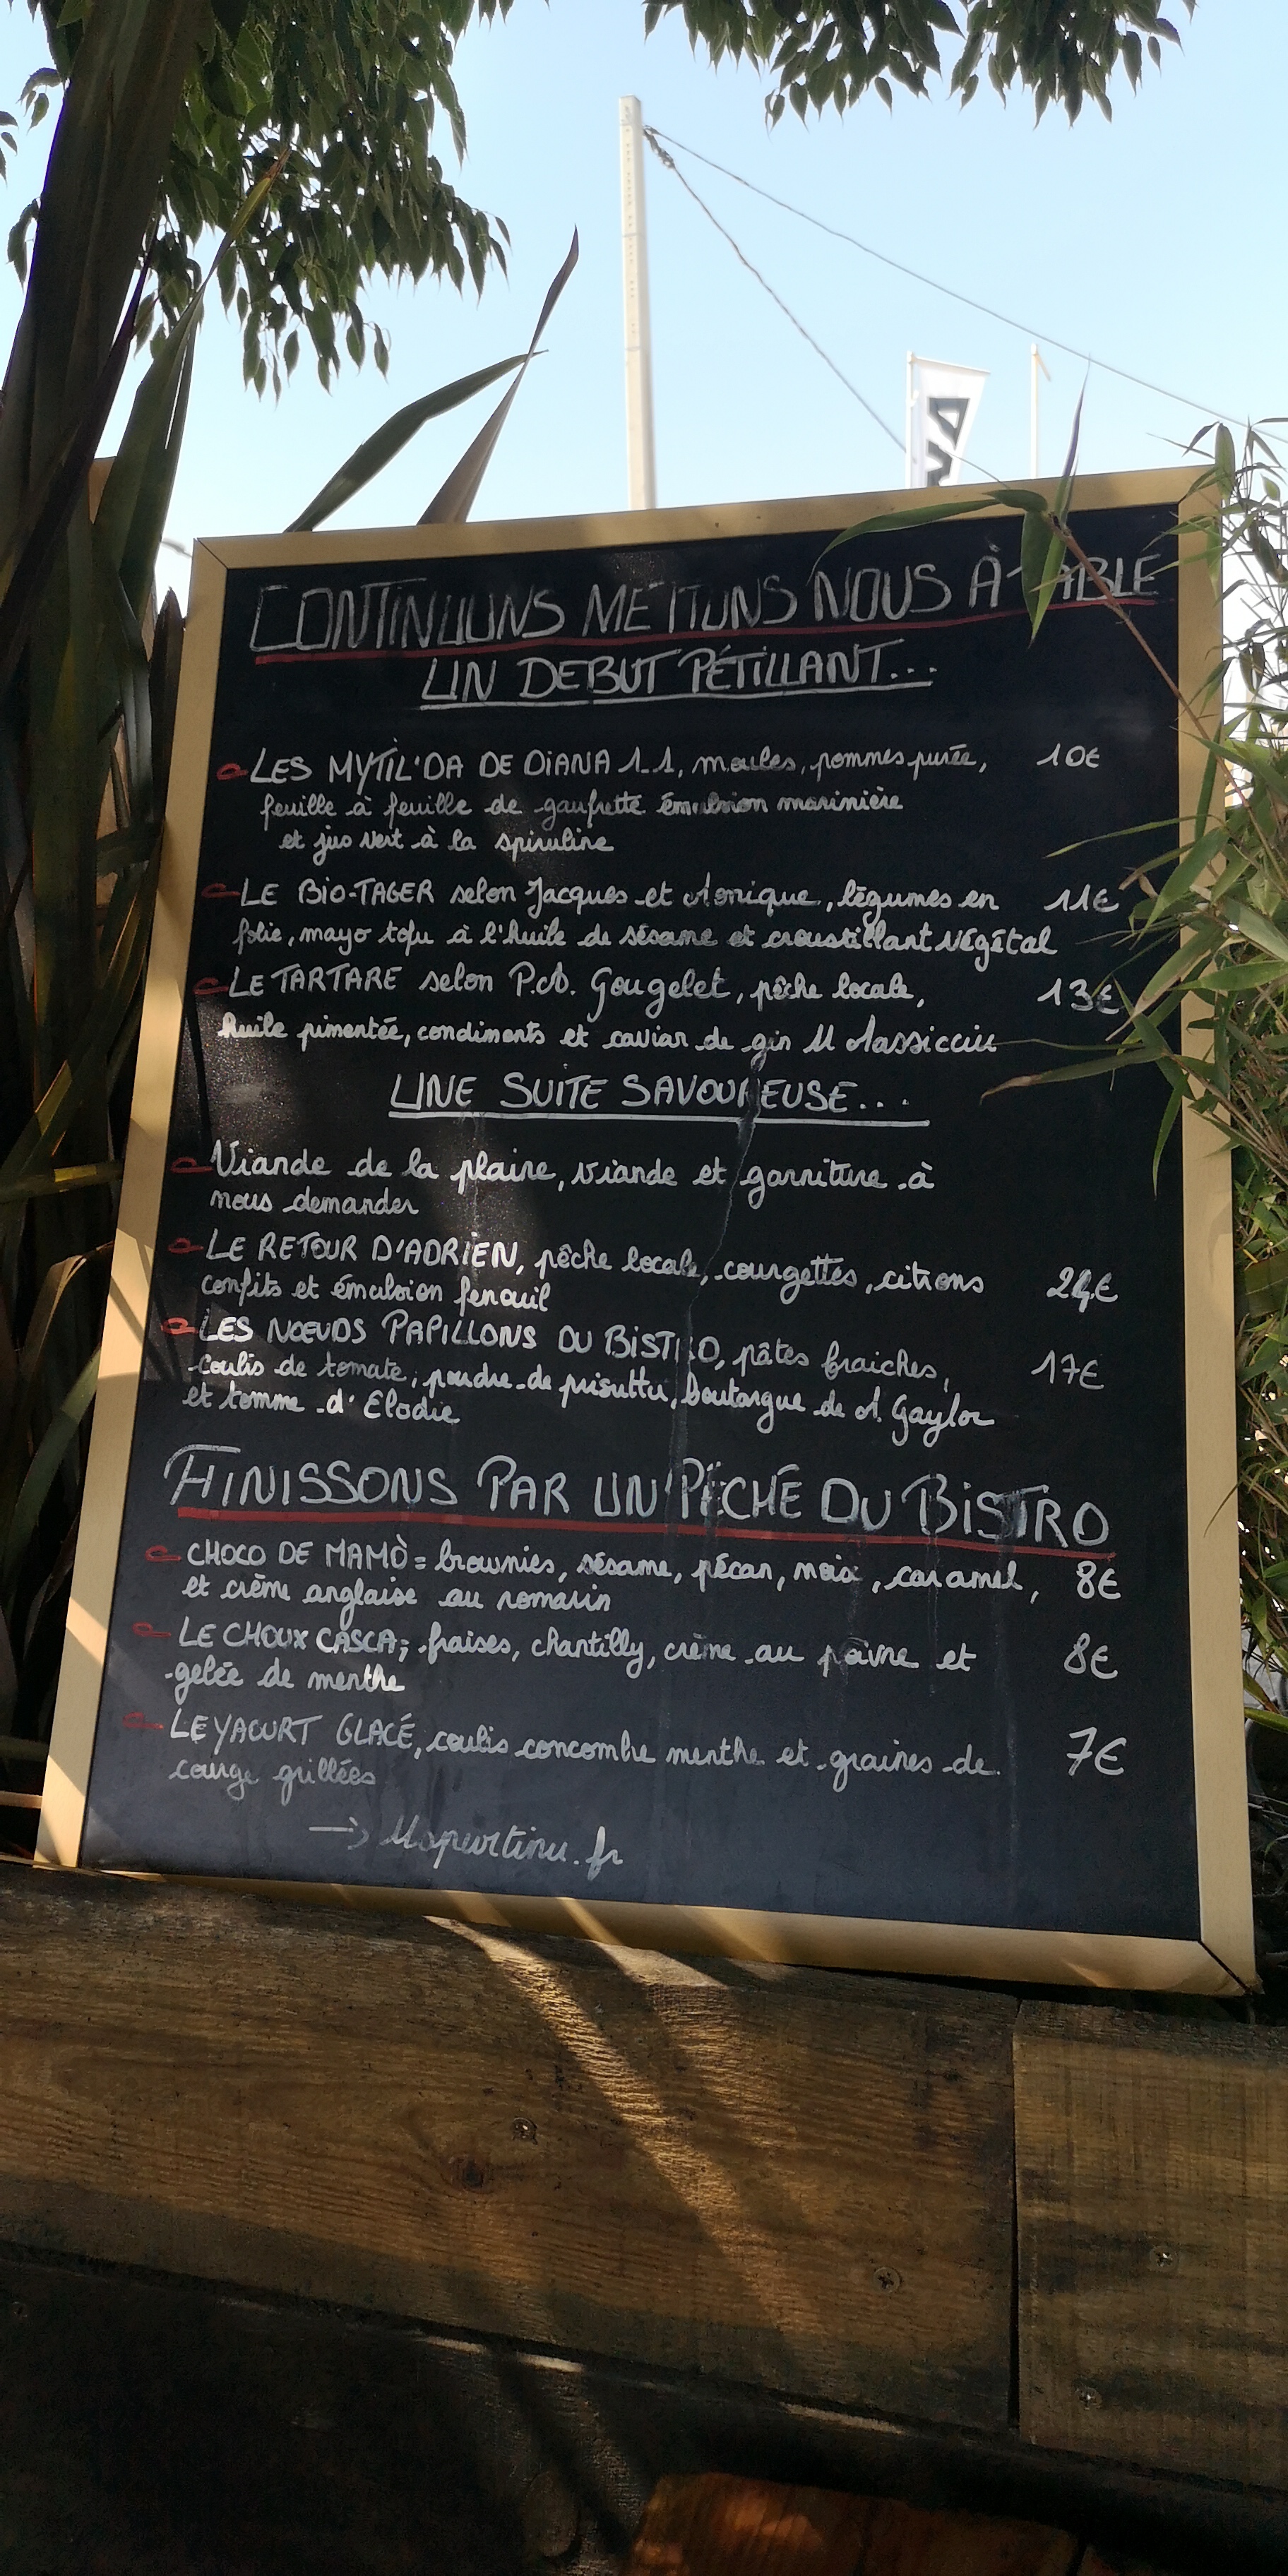 VA
CONTINUONS METTONS NOUS À TABLE
UN DEBUT PÉTILLANT...
LES MYTIL'DA DE DIANA 1.1, moules, pommes purée, 10€
feuille à feuille de gaufrette émulsion marinière
et jus vert à la spiruline
LE BIO-TAGER selon Jacques et Monique, légumes en 11€
folie, mayo tofu à l'huile de sésame et croustillant végétal
LE TARTARE selon P.M. Gougelet, pêche locale, 13€
huile pimentée, condiments et caviar de gin U Massicciu
UNE SUITE SAVOUREUSE...
Viande de la plaine, viande et garniture à
nous demander
LE RETOUR D'ADRIEN, pêche locale, courgettes, citrons 24€
confits et émulsion fenouil
LES NŒUDS PAPILLONS DU BISTRO, pâtes fraiches, 17€
coulis de tomate, poudre de prisuttu, boutargue de M. Gaylor
et tomme d'Elodie
FINISSONS PAR UN PÉCHÉ DU BISTRO
CHOCO DE MAMÒ = brownies, sésame, pécan, noix, caramel, 8€
et crème anglaise au romarin
LE CHOUX CASCA; fraises, chantilly, crème au poivre et 8€
gelée de menthe
LE YAOURT GLACÉ, coulis concombre menthe et graines de 7€
courge grillées
→ Uspuntinu.fr